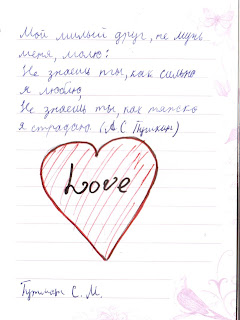 Мой милый друг, не мучь
меня, молю:
Не знаешь ты, как сильно
я люблю,
Не знаешь ты, как тяжко
я страдаю. (А С Пушкин)
Love
С. М.